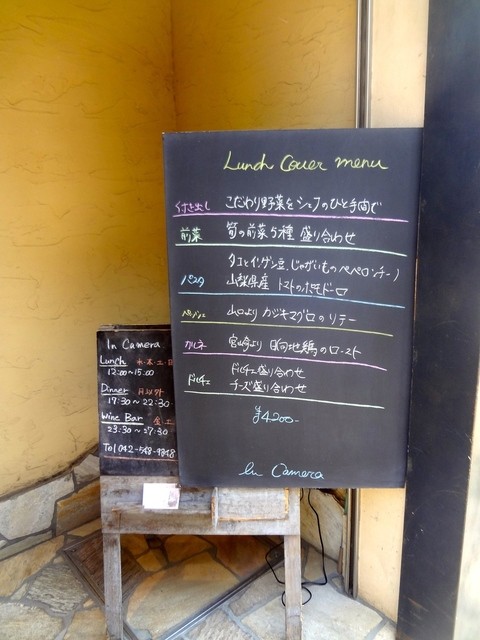 Lunch Couer menu
つき出し こだわり野菜をシェフのひと手間で
前菜 旬の前菜5種 盛り合わせ
タコとインゲン豆、じゃがいものペペロンチーノ
パスタ 山梨県産 トマトのポモドーロ
ペッシェ 山口より カジキマグロのソテー
カルネ 宮崎より 日向地鶏のロースト
ドルチェ ドルチェ盛り合わせ
チーズ盛り合わせ
¥4.200-
In Camera
In Camera
Lunch 木・金・土・日
12:00~15:00
Dinner 月以外
17:30~22:30
Wine Bar 金、土
23:30~27:30
Tel 042-548-9848